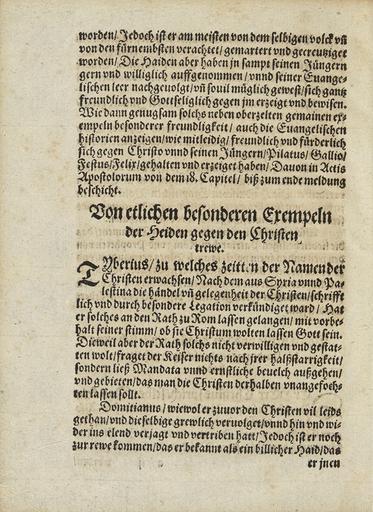 worden/ Jedoch ist er am meisten von dem selbigen volck vñ
von den fürnembsten verachtet/ gemartert vnd gecreutziget
worden/ Die Haiden aber haben jn sampt seinen Jüngern
gern vnd williglich auffgenommen/ vnnd seiner Euange-
lischen leer nachgeuolgt/ vñ souil müglich gewest/ sich gantz
freundlich vnd Gottseliglich gegen jm erzeigt vnd bewisen.
Wie dann genugsam solchs neben oberzelten gemainen ex-
empeln besonderer freundligkeit/ auch die Euangelischen
historien anzeigen/ wie mitleidig/ freundlich vnd fürderlich
sich gegen Christo vnnd seinen Jüngern/ Pilatus/ Gallio/
Festus/ Felix/ gehalten vnd erzeiget haben/ Dauon in Actis
Apostolorum von dem 18. Capitel/ biß zum ende meldung
beschicht.
Von etlichen besonderen Exempeln
der Heiden gegen den Christen
trewe.
TYberius/ zu welches zeitten der Namen der
Christen erwachsen/ Nach dem aus Syria vnnd Pa-
lestina die händel vñ gelegenheit der Christen/ schrifft-
lich vnd durch besondere Legation verkündiget ward/ Hat
er solches an den Rath zu Rom lassen gelangen/ mit vorbe-
halt seiner stimm/ ob sie Christum wolten lassen Gott sein.
Dieweil aber der Rath solchs nicht verwilligen vnd gestat-
ten wolt/ fraget der Keiser nichts nach jrer halßstarrigkeit/
sondern ließ Mandata vnnd ernstliche beuelch außgehen/
vnd gebieten/ das man die Christen derhalben vnangefoch-
ten lassen sollt.
Domitianus/ wiewol er zuuor den Christen vil leids
gethan/ vnd die selbige grewlich veruolget/ vnnd hin vnd wi-
der ins elend veriagt vnd vertriben hatt/ Jedoch ist er noch
zur rewe kommen/ das er bekannt als ein billicher Haid/ das
er jnen